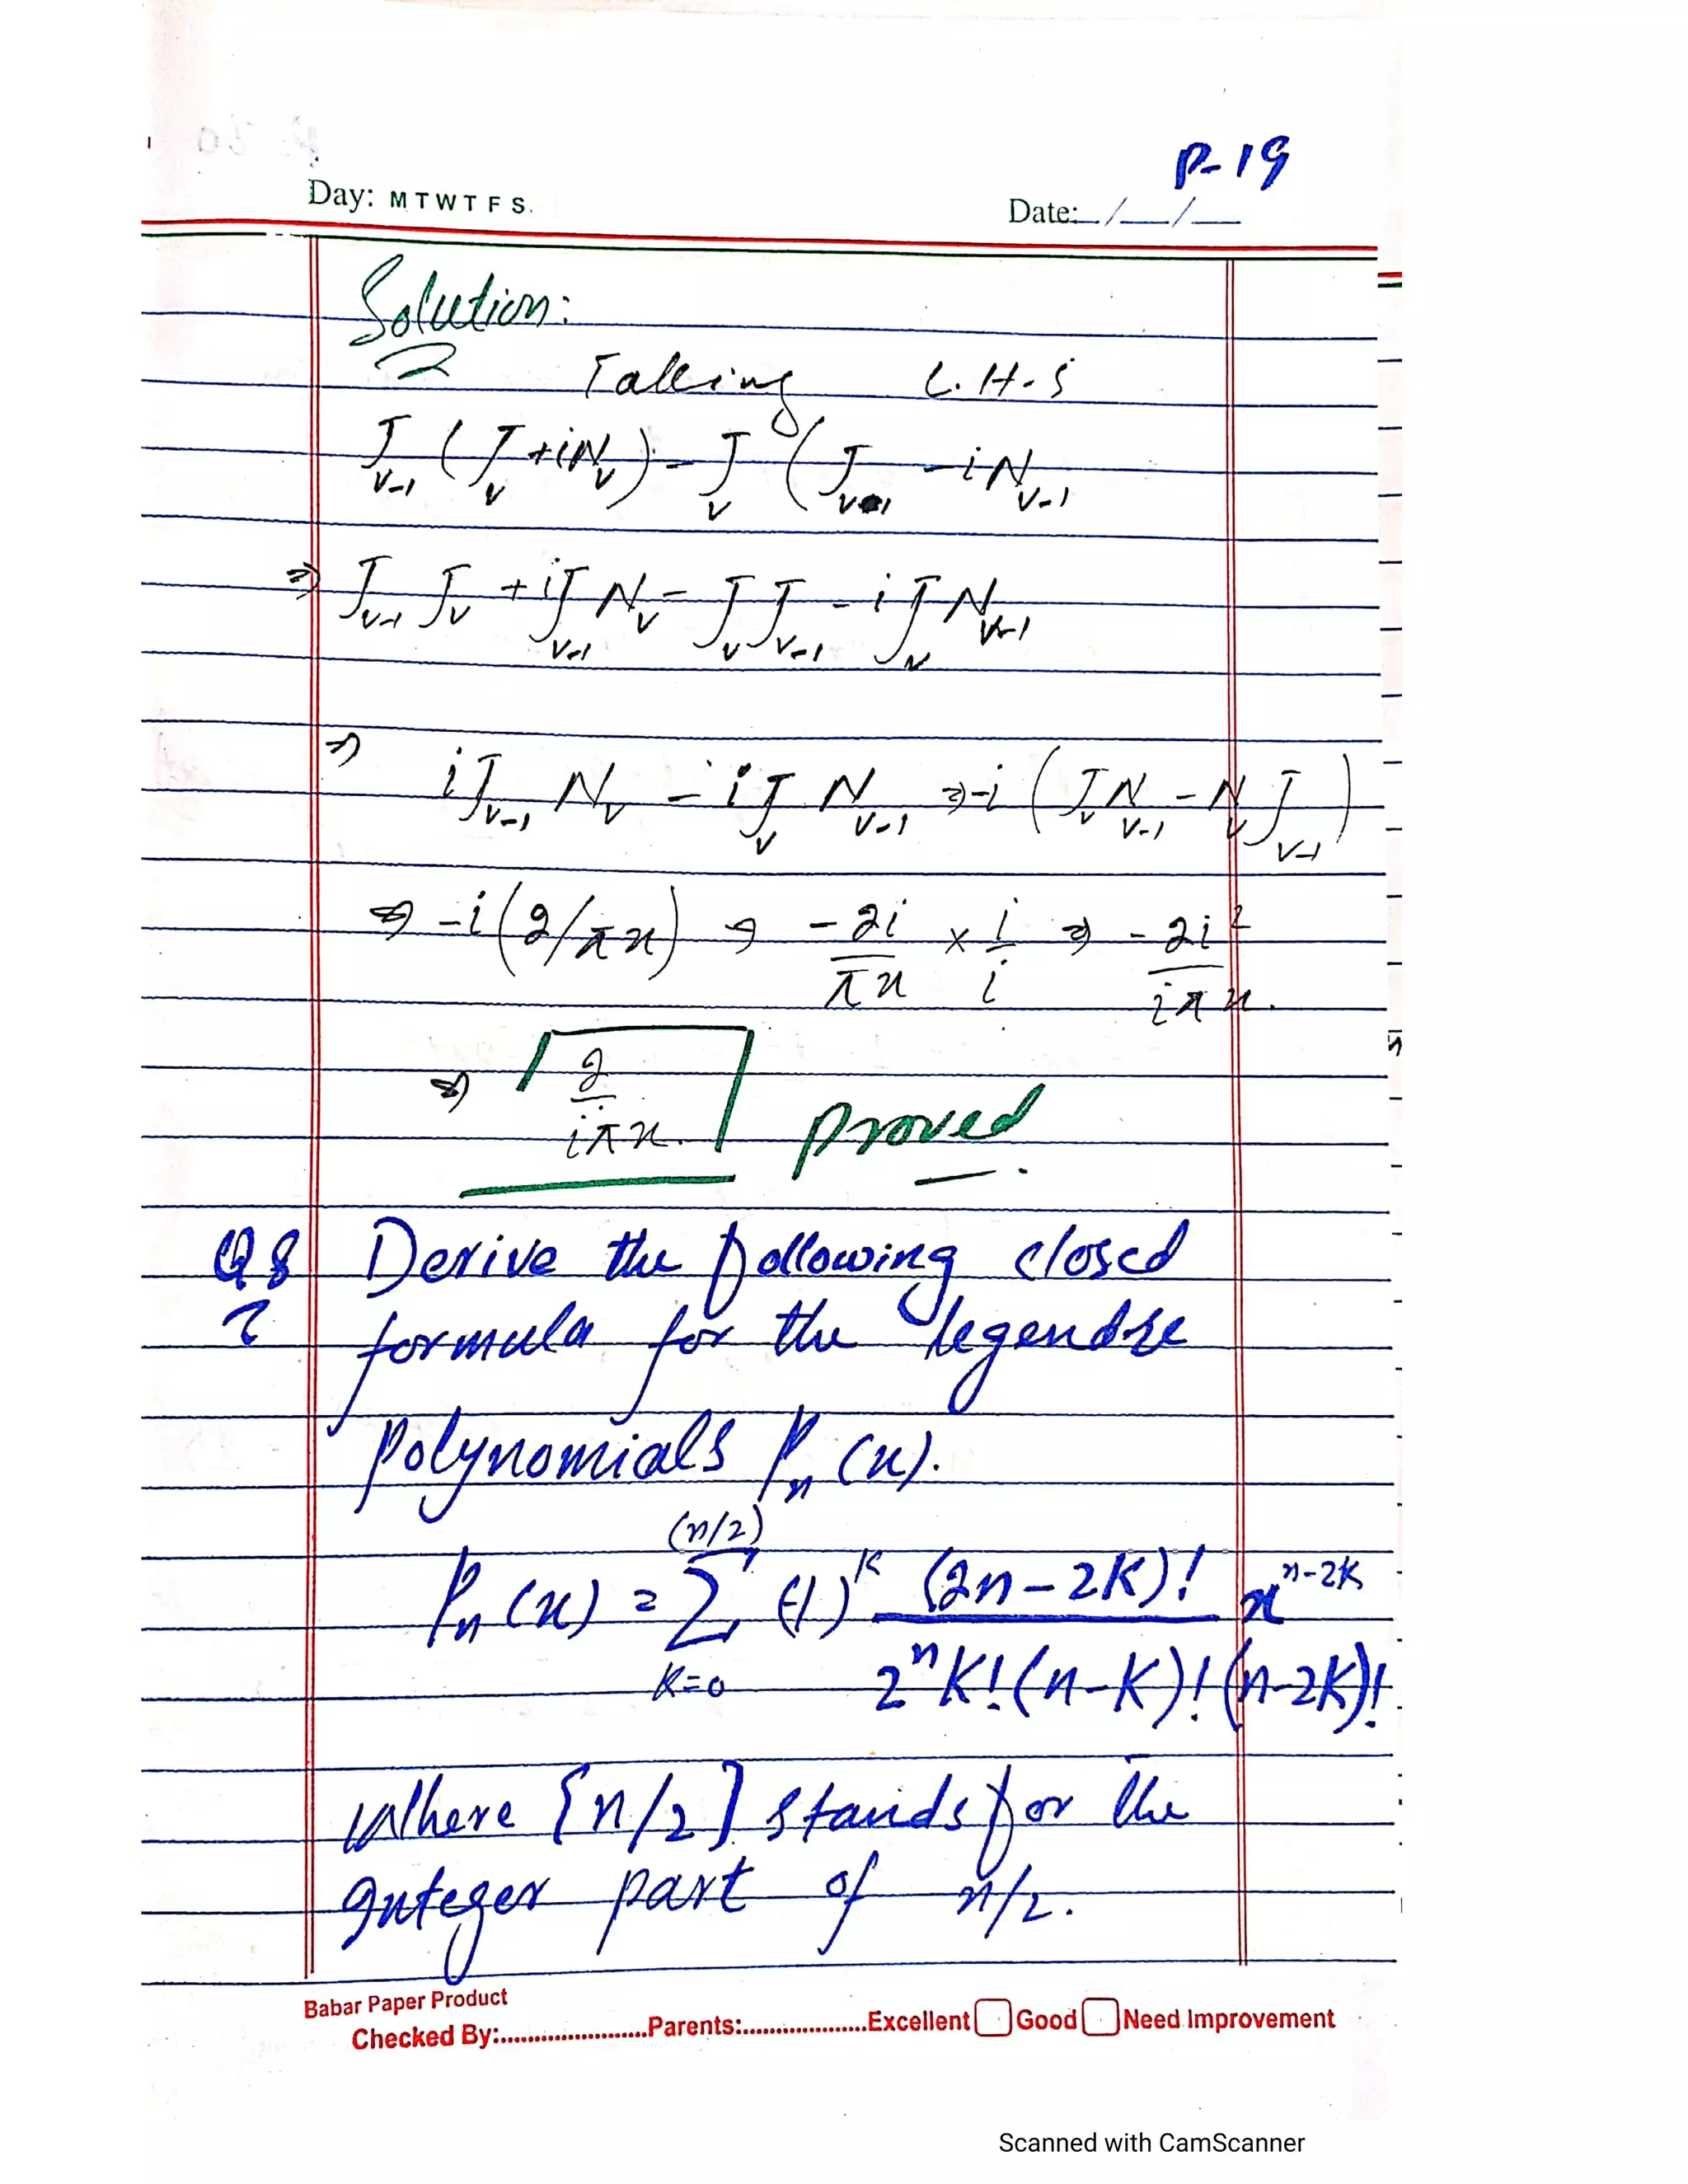 P-19
Day: M T W T F S.
Date:__/__/__
Solution:
Taking L.H.S
J_{v-1} (J_v + iN_v) - J_v (J_{v-1} - iN_{v-1}
⇒ J_{v-1} J_v + iJ_{v-1} N_v - J_v J_{v-1} - iJ_v N_{v-1}
⇒ iJ_{v-1} N_v - iJ_v N_{v-1} ⇒ -i (J_v N_{v-1} - N_v J_{v-1})
⇒ -i(2/πx) ⇒ -2i/πx × i/i ⇒ -2i²/iπx.
⇒ 2/iπx. proved
Q8 Derive the following closed
formula for the legendre
polynomials P_n(x).
P_n(x) = Σ_{K=0}^{(n/2)} (-1)^K (2n-2K)! / 2^n K!(n-K)!(n-2K)! x^{n-2K}
Where [n/2] stands for the
Integer part of n/2.
Babar Paper Product
Checked By:........................Parents:....................Excellent Good Need Improvement
Scanned with CamScanner